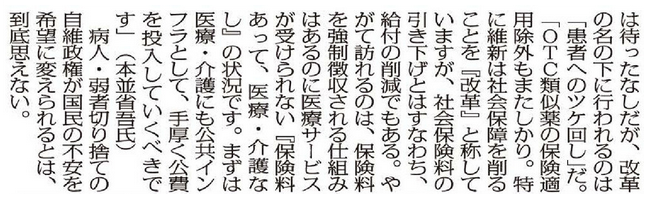 は待ったなしだが、改革
の名の下に行われるのは
「患者へのツケ回し」だ。
「OTC類似薬の保険適
用除外もまたしかり。特
に維新は社会保障を削る
ことを『改革』と称して
いますが、社会保険料の
引き下げとはすなわち、
給付の削減でもある。や
がて訪れるのは、保険料
を強制徴収される仕組み
はあるのに医療サービス
が受けられない『保険料
あって、医療・介護な
し』の状況です。まずは
医療・介護にも公共イン
フラとして、手厚く公費
を投入していくべきで
す」(本並省吾氏)
病人・弱者切り捨ての
自維政権が国民の不安を
希望に変えられるとは、
到底思えない。